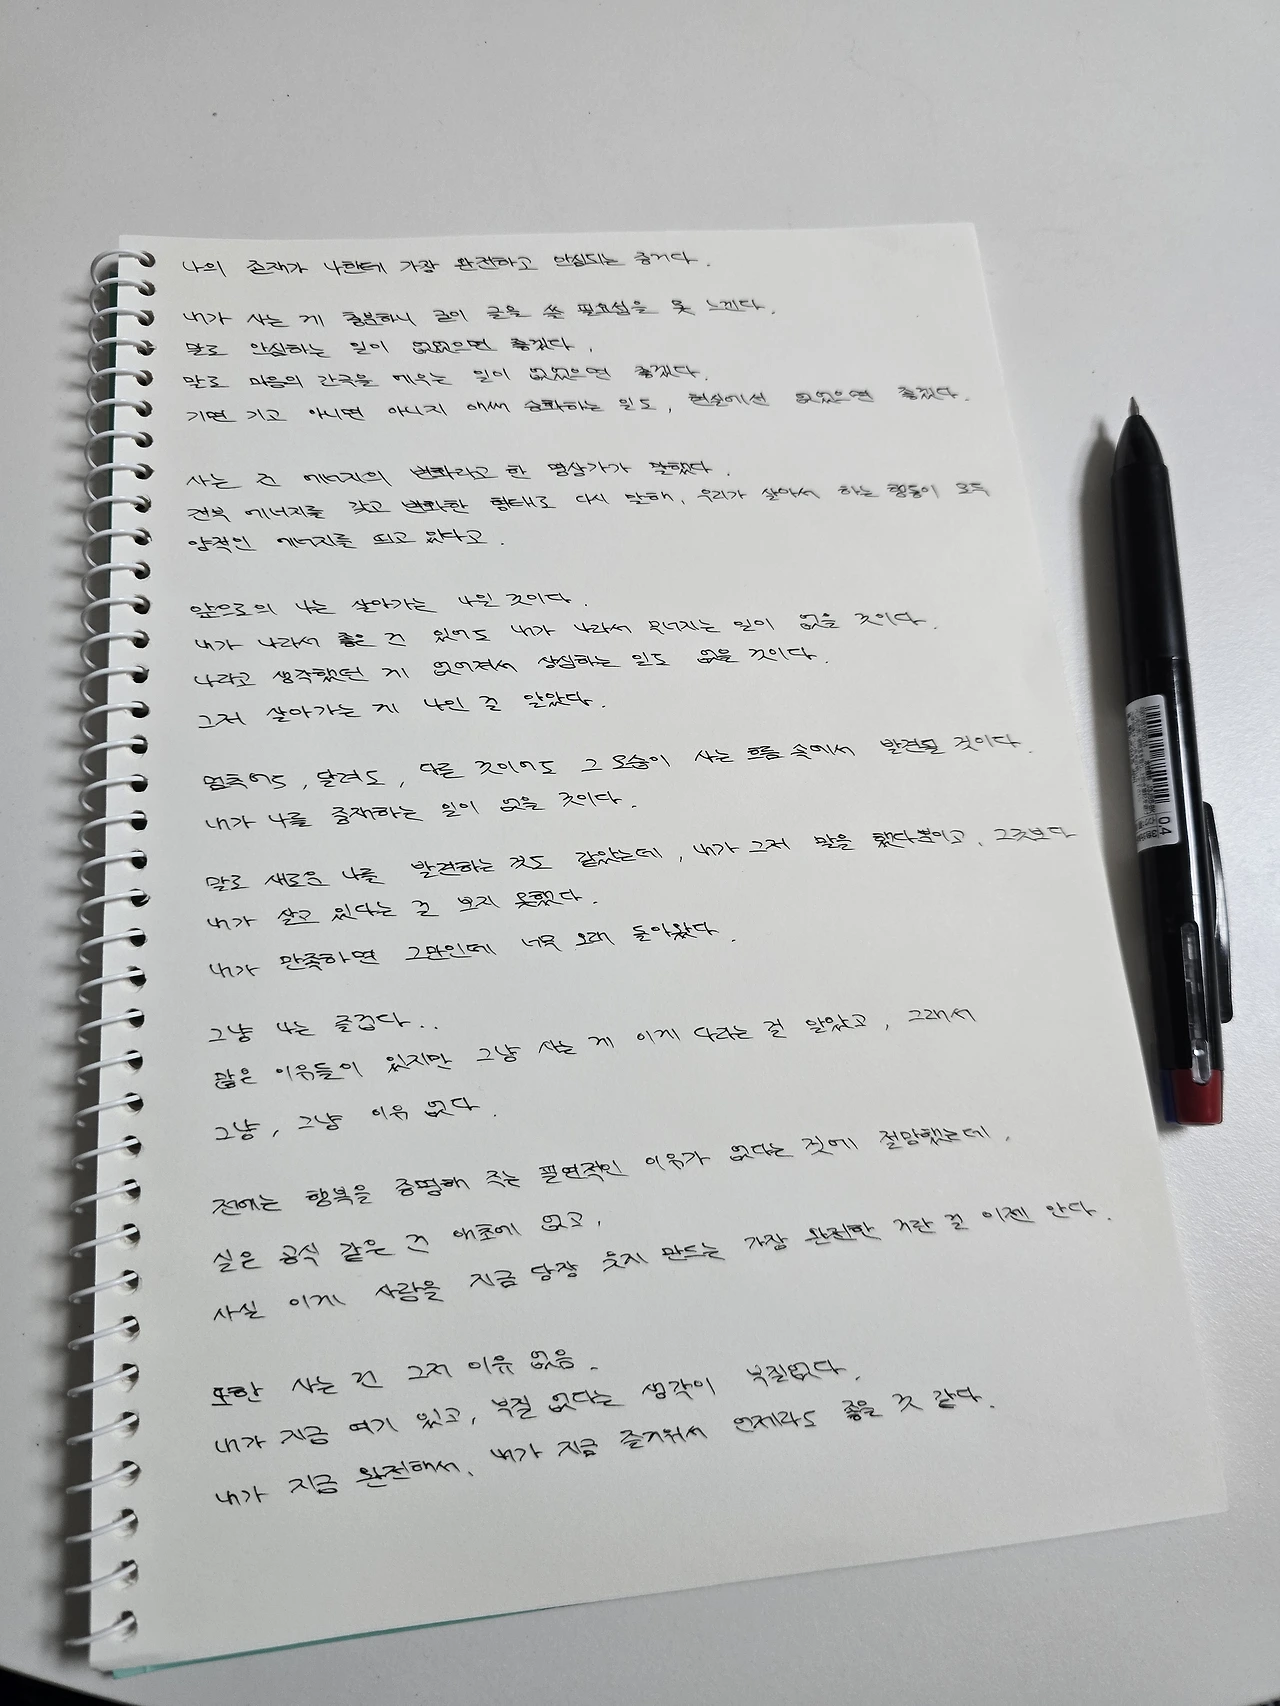 나의 존재가 나한테 가장 완전하고 안심되는 증거다.
내가 사는 게 충분하니 굳이 글을 쓸 필요성을 못 느낀다.
말로 안심하는 일이 없었으면 좋겠다.
말로 마음의 간극을 메우는 일이 없었으면 좋겠다.
기면 기고 아니면 아니지 애써 승화하는 일도, 현실에선 없었으면 좋겠다.
사는 건 에너지의 변화라고 한 명상가가 말했다.
전부 에너지를 갖고 변화한 형태로 다시 말해, 우리가 살아서 하는 행동이 모두
양적인 에너지를 띄고 있다고.
앞으로의 나는 살아가는 나일 것이다.
내가 나라서 좋은 건 있어도 내가 나라서 무너지는 일이 없을 것이다.
나라고 생각했던 게 없어져서 상심하는 일도 없을 것이다.
그저 살아가는 게 나인 걸 알았다.
멈춰도, 달려도, 다른 것이어도 그 모습이 사는 흐름 속에서 발견될 것이다.
내가 나를 중재하는 일이 없을 것이다.
말로 새로운 나를 발견하는 것도 같았는데, 내가 그저 말을 했다뿐이고, 그것보다
내가 살고 있다는 걸 보지 못했다.
내가 만족하면 그만인데 너무 오래 돌아왔다.
그냥 나는 즐겁다..
많은 이유들이 있지만 그냥 사는 게 이게 다라는 걸 알았고, 그래서
그냥, 그냥 이유 없다.
전에는 행복을 증명해 주는 필연적인 이유가 없다는 것에 절망했는데,
실은 공식 같은 건 애초에 없고,
사실 이게 사람을 지금 당장 웃게 만드는 가장 완전한 거란 걸 이젠 안다.
또한 사는 건 그저 이유 없음.
내가 지금 여기 있고, 부질 없다는 생각이 부질없다.
내가 지금 완전해서, 내가 지금 즐거워서 언제라도 좋을 것 같다.
04